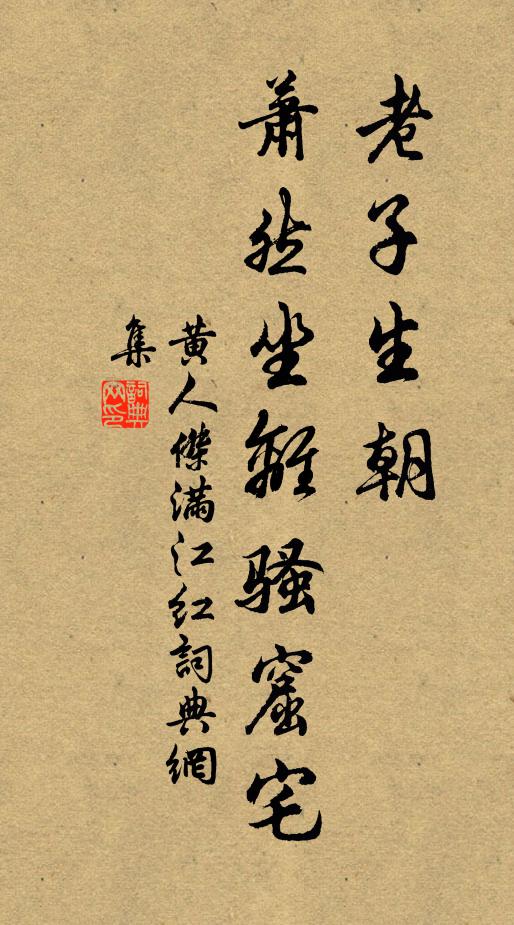 老子生朝
蕭然坐離騷窟宅
黃人傑滿江紅詞典網
集
詞典
网印